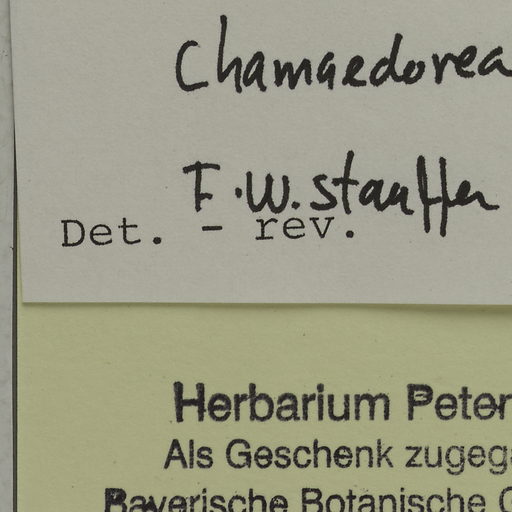 Chamaedorea
F.W. Stauffer
Det. - rev.
Herbarium Peter
Als Geschenk zugeg
Bayerische Botanische G